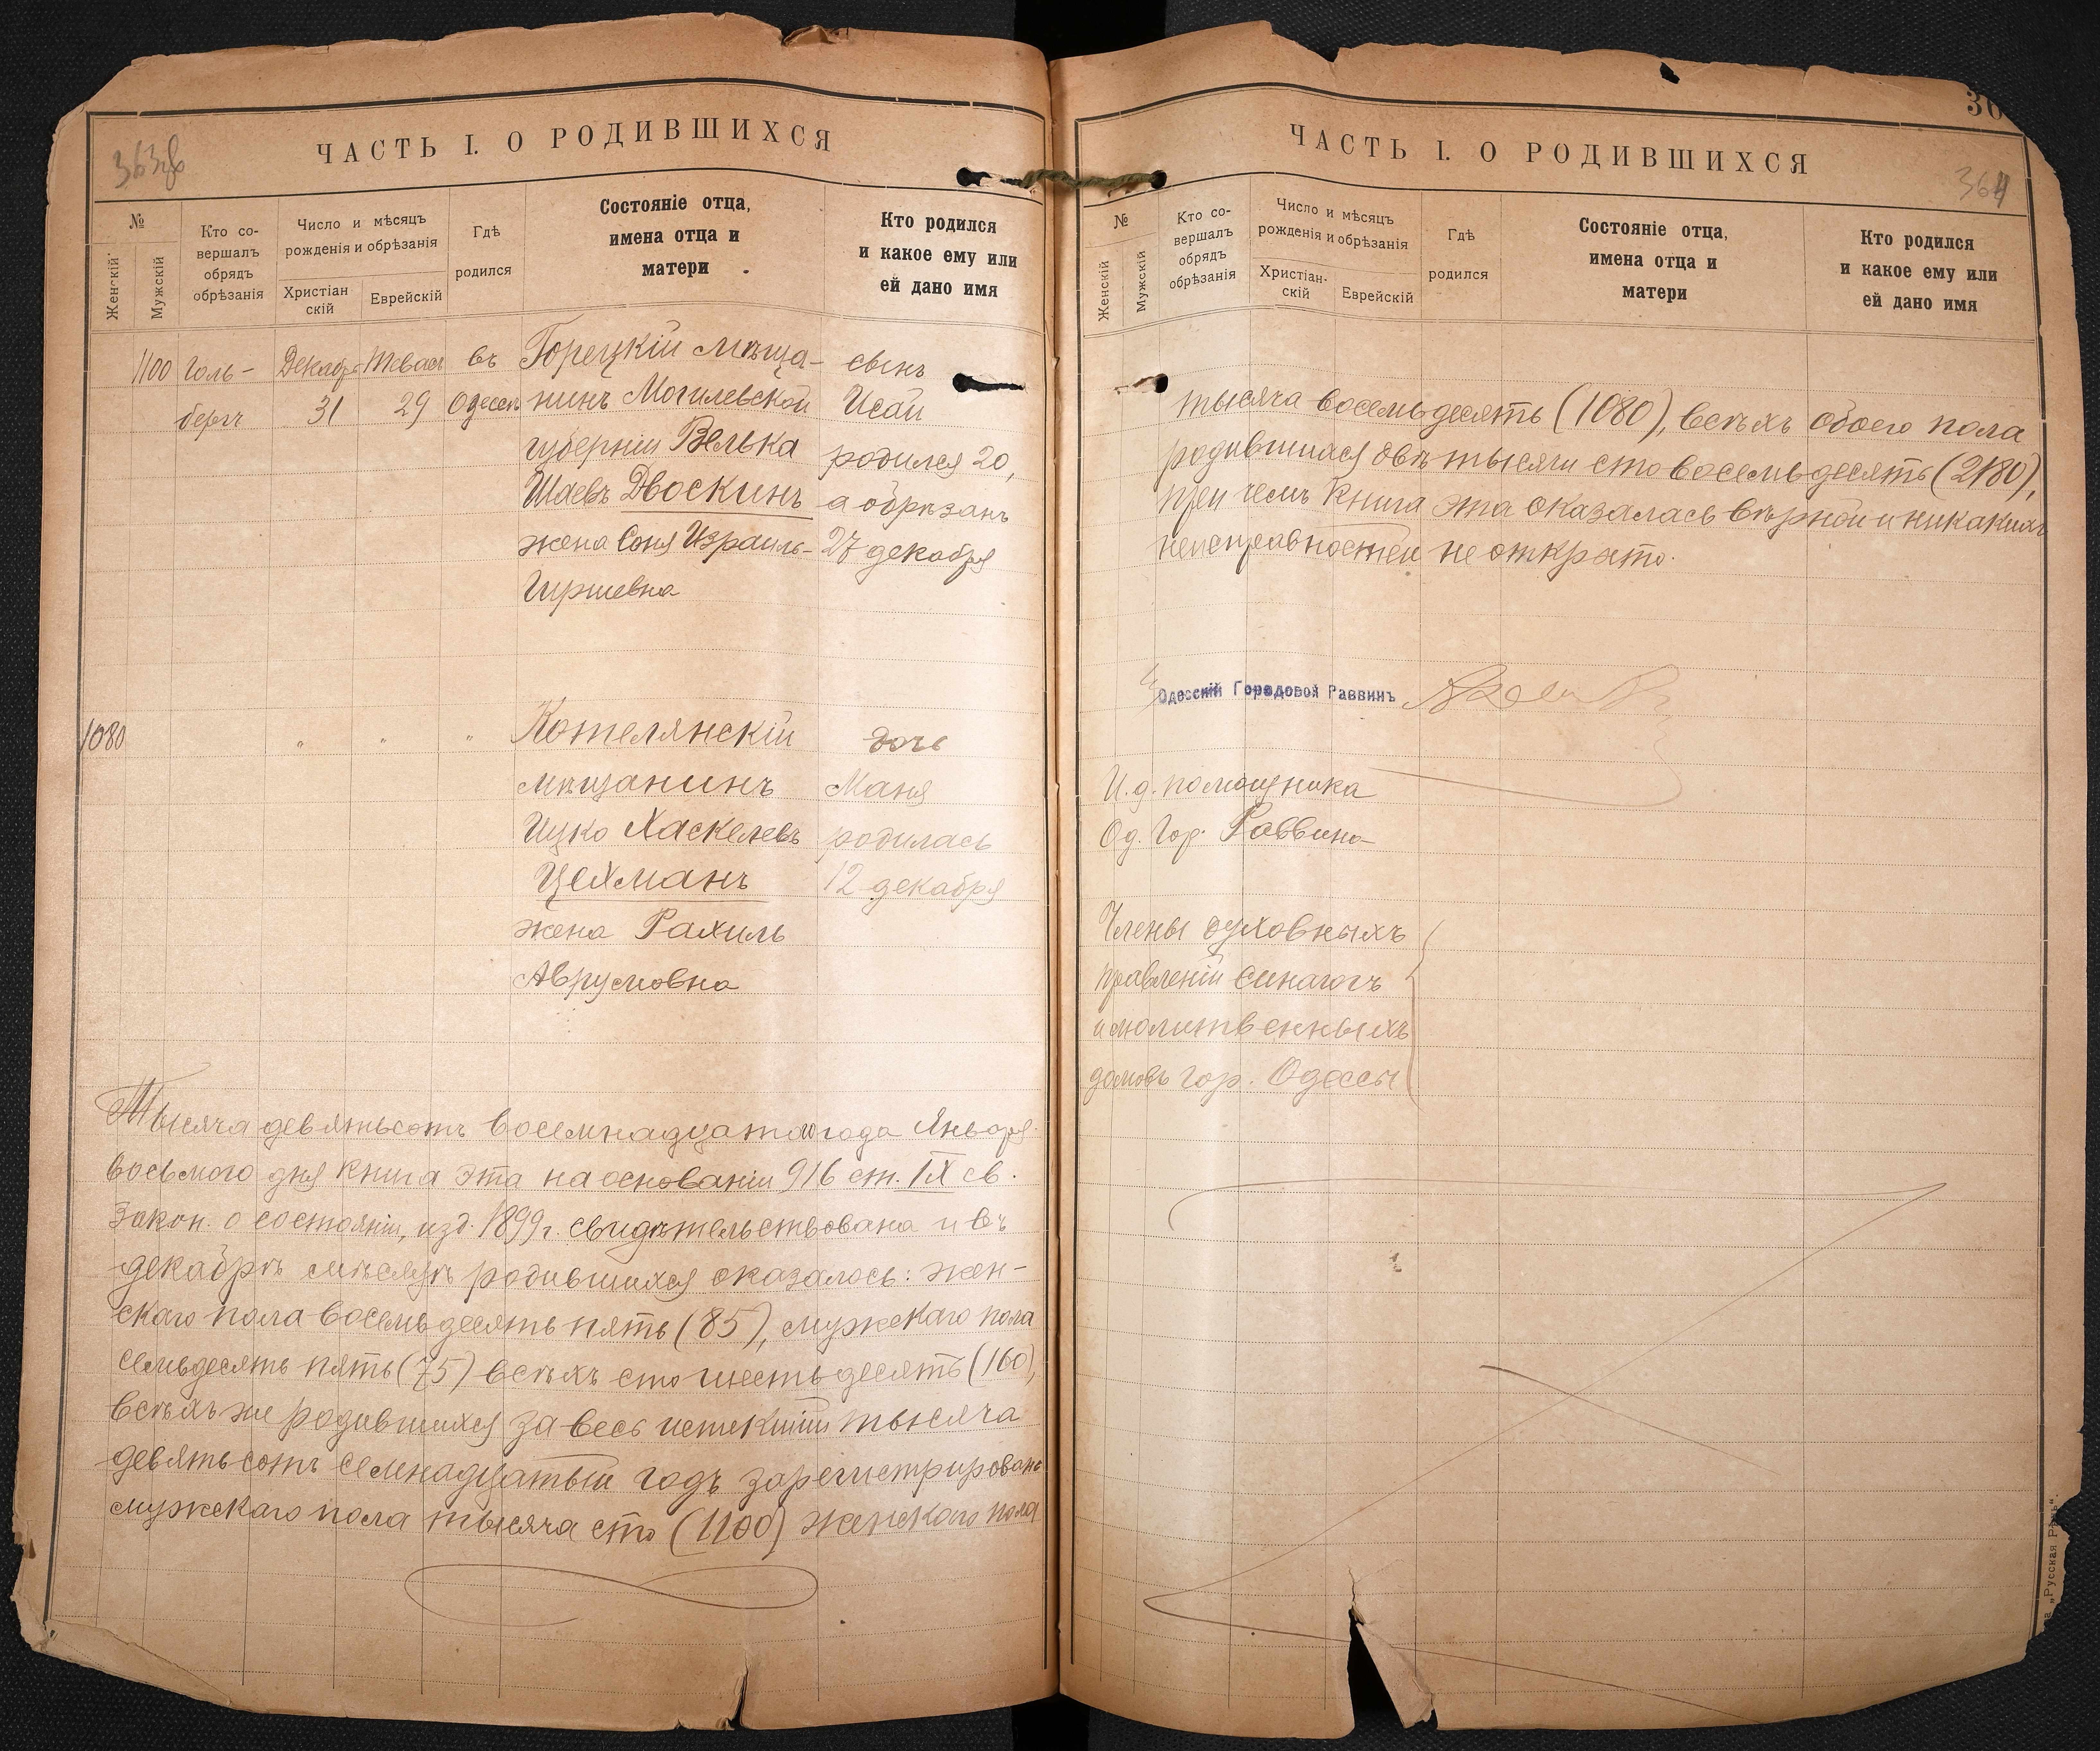 363об
ЧАСТЬ I. О РОДИВШИХСЯ
№
Женскій
Мужскій
Кто со-
вершалъ
обрядъ
обрѣзанія
Число и мѣсяцъ
рожденія и обрѣзанія
Христіан
скій
Еврейскій
Гдѣ
родился
Состояніе отца,
имена отца и
матери
Кто родился
и какое ему или
ей дано имя
1100 Голь- Декабр Тевас въ Горецкій мѣща- сынъ
бергъ 31 29 Одессѣ нинъ Могилевской Исаи
губерніи Велька родился 20,
Шаевъ Двоскинъ а обрѣзанъ
жена Соня Израиль- 27 декабря
Гиршевна
1080 " " " Котелянскій дочь
мѣщанинъ Маня
Ицко Хаскелевъ родилась
Цехманъ 12 декабря
жена Рахиль
Аврумовна
Тысяча девятьсотъ восемнадцатого года Января
восьмого дня книга эта на основаніи 916 ст. IX св.
Закон. о состояніи, изд. 1899 г. свидѣтельствована и въ
декабрѣ мѣсяцѣ родившихся оказалось: жен-
скаго пола восемьдесятъ пять (85), мужскаго пола
семьдесятъ пять (75) всѣхъ сто шестьдесятъ (160),
всѣхъ же родившихся за весь истекшій тысяча
девятьсотъ семнадцатый годъ зарегистрировано
мужскаго пола тысяча сто (1100) женскаго пола
36
364
ЧАСТЬ I. О РОДИВШИХСЯ
№
Женскій
Мужскій
Кто со-
вершалъ
обрядъ
обрѣзанія
Число и мѣсяцъ
рожденія и обрѣзанія
Христіан-
скій
Еврейскій
Гдѣ
родился
Состояніе отца,
имена отца и
матери
Кто родился
и какое ему или
ей дано имя
тысяча восемьдесятъ (1080), всѣхъ обоего пола
родившихся двѣ тысячи сто восемьдесятъ (2180),
при чемъ книга эта оказалась вѣрной и никакихъ
неисправностей не открыто.
Одесскій Городовой Раввинъ
И.д. помощника
Од. Гор. Раввина
Члены духовныхъ
правленій синагогъ
и молитвенныхъ
домовъ гор. Одессы
„Русская Рѣчь“.